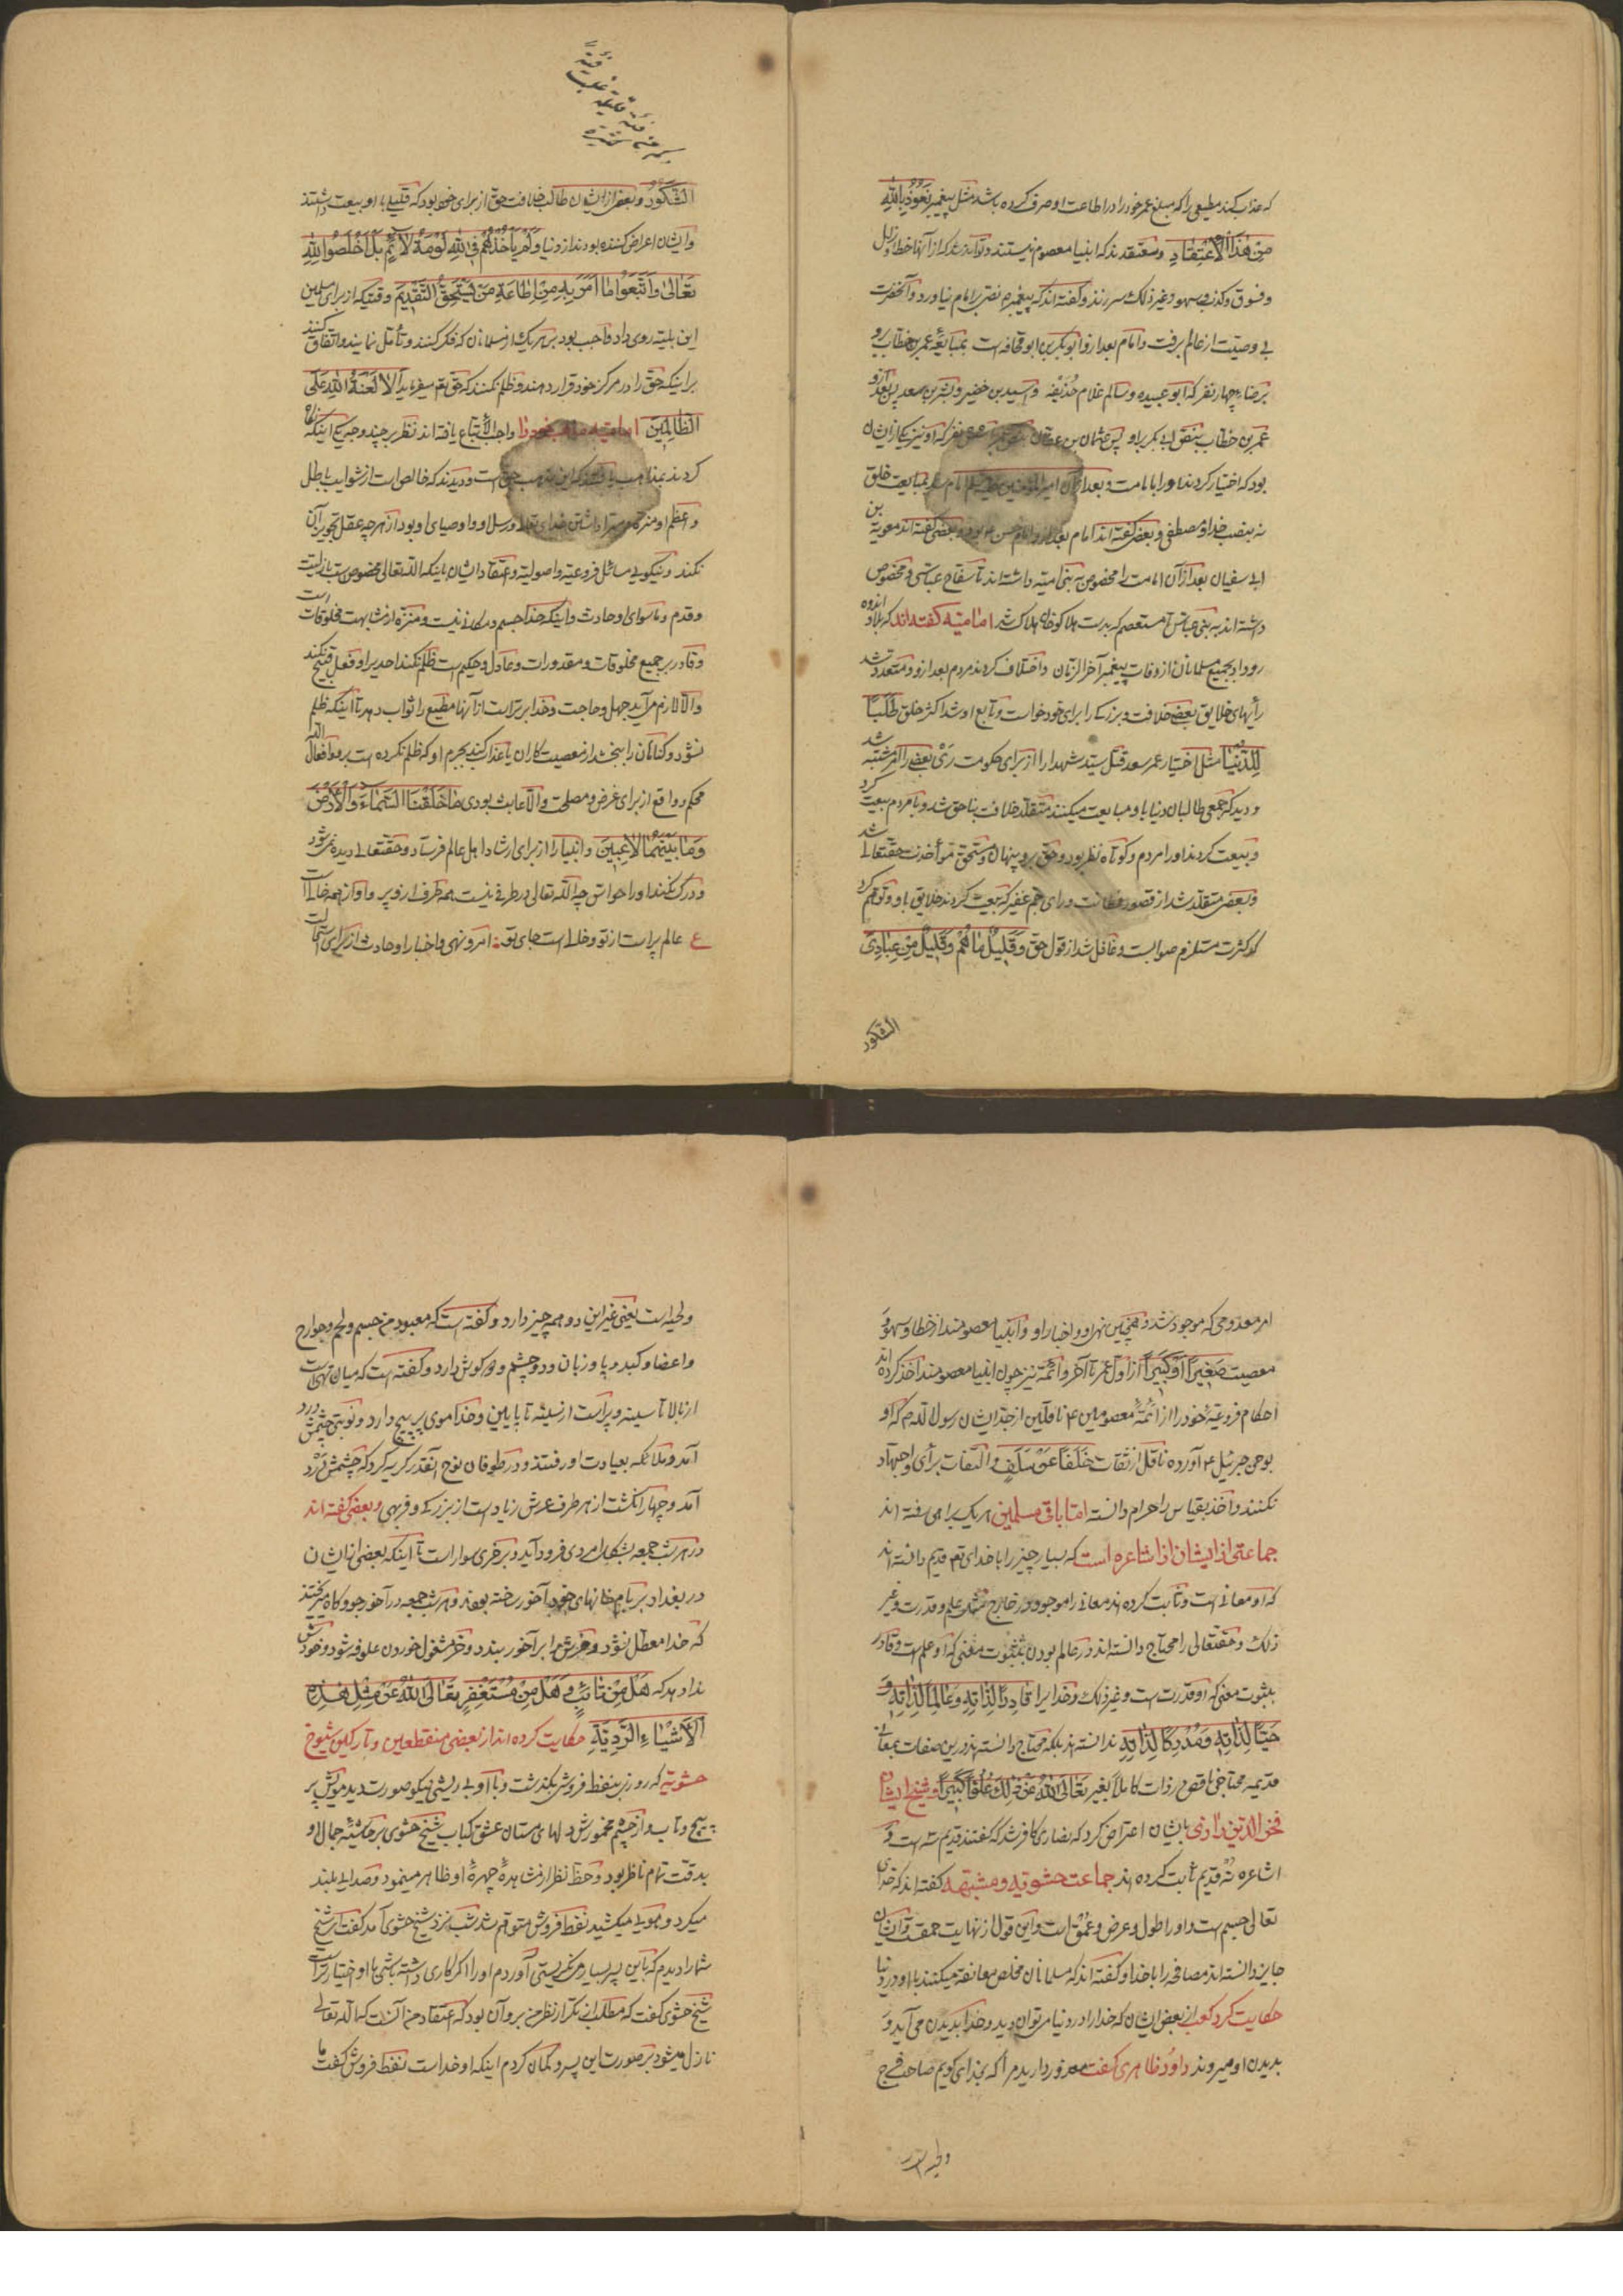 که عذاب کند مطیعی را که مبلغ عمر خود را در اطاعت او صرف کرده باشد مثل پیغمبر نَعُوذُ بِاللهِ
مِنْ هٰذَا الْاِعْتِقَادِ و معتقدند که انبیا معصوم نیستند و تواند بود که از آنها خطا و زلل
و فسوق و کذب و سهو و غیر ذلک سر زند و گفته اند که پیغمبر نص بر امام نیاورد و آنحضرت
بی وصیت از عالم برفت و امام بعد از او ابو بکر بن ابو قحافه است بمبایعهٔ عمر بن خطاب
برضاء چهار نفر که ابو عبیده و سالم غلام حذیفه و اسید بن خضیر و بشر بن سعد پس بعد ازو
عمر بن خطاب بنص ابی بکر براو پس عثمان بن عفان بنص عمر نفر که او نیز یکی از ایشان
بود که اختیار کردند او را بامامت و بعد از آن امیر المؤمنین امام شد بمبایعت خلق
نه بنصب خدا و مصطفی و بعضی گفته اند امام بعد از و امام حسن بود و بعضی گفته اند معویة بن
ابی سفیان بعد از آن امامت را مخصوص به بنی امیه داشته اند تا سفاح عباسی و مخصوص
داشته اند به بنی عباس تا مستعصم که بدست هلاکو خان هلاک شد امامیه گفته اند که بلا و اندوه
رو داد بجمیع مسلمانان از وفات پیغمبر آخر الزمان و اختلاف کردند مردم بعد از و و متعدد شد
رأیهای خلایق بعضی خلافت و بزرگی را برای خود خواست و تابع او شد اکثر خلق طَلَباً
لِلدُّنْیَا مثل اختیار عمر سعد قتل سید شهدا را از برای حکومت ری بعضی را امر مشتبه شد
و دید که جمعی طالبان دنیا با و مبایعت میکنند متقلد خلافت بنا حق شد و با مردم بیعت کرد
و بیعت کردند او را مردم و کوتاه نظر بود و حق برو پنهان و مستحق مؤاخذت حقتعالی شد
و بعضی متقلد شد از قصور فطانت و رای جم غفیر که بیعت کردند خلایق با و و توهم کرد
که کثرت مستلزم صوابست و غافل شد از قول حق وَقَلِیلٌ مَا هُمْ وَقَلِیلٌ مِنْ عِبَادِیَ
الشکور
فئة
قلیلة غلبت
کم من فئة کثیرة
الشَّکُورُ و بعضی از ایشان طالب خلافت حق از برای خود بود که قلیلی با او بیعت داشتند
و ایشان اعراض کننده بودند از دنیا و لَمْ یَأْخُذْهُمْ فِی اللهِ لَوْمَةُ لَائِمٍ بَلْ اَخْلَصُوا لِلهِ
تَعَالَىٰ وَاتَّبَعُوا مَا اَمَرَ بِهِ مِنْ اِطَاعَةِ مَنْ یَسْتَحِقُّ التَّقْدِیمَ وقتیکه از برای مسلمین
این بلیه روی داد واجب بود بر هر یک از مسلمانان که فکر کنند و تأمل نمایند و اتفاق کنند
بر اینکه حق را در مرکز خود قرار دهند و ظلم نکنند که حق تع میفرماید اَلَا لَعْنَةُ اللهِ عَلَى
الظَّالِمِینَ امامیه مذهب خود را واجب الأتباع یافته اند نظر بر چند وجه یکی اینکه نظر
کردند بمذاهب یافتند که این مذهب حق است و دیدند که خالص است از شوایب باطل
و اعظم او منزه داشتن خدای تعالی و رسل او و اوصیای او بود از هر چه عقل تجویز آن
نکند و نیکویی مسائل فروعیه و اصولیه و اعتقاد ایشان باینکه الله تعالی مخصوص است بازلیت
و قدم و ماسوای او حادث و اینکه خدا جسم و مکانی نیست و منزه از مشابهت مخلوقات است
و قادر بر جمیع مخلوقات و مقدورات و عادل و حکیم است ظلم نکند احدیرا و فعل قبیح نکند
و الا لازم می آید جهل و حاجت و خدا بریّ است از آنها مطیع را ثواب دهد تا اینکه ظلم
نشود و گناهان را ببخشد از معصیت کاران یا عذاب کند بجرم او که ظلم نکرده است براو افعال الله
محکم و واقع از برای غرض و مصلحت و الا عابث بودی مَا خَلَقْنَا السَّمَاءَ وَالْاَرْضَ
وَمَا بَیْنَهُمَا لَاعِبِینَ و انبیا را از برای ارشاد اهل عالم فرستاد و حقتعالی دیده نمی شود
و درک نکند او را حواس چه الله تعالی در طرفی نیست همه طرف ازو پر و او از همه خالیست
ع عالم پر است از تو و خالی است جای تو امر و نهی و اخبار او حادث از برای استحالت
امر معدومی که موجود نشد و همچنین نهی او و اخبار او و انبیا معصومند از خطا و سهو و
معصیت صَغِیراً اَوْ کَبِیراً از اول عمر تا آخر و ائمه نیز چون انبیا معصومند اخذ کرده اند
احکام فروعیهٔ خود را از ائمهٔ معصومین ع ناقلین از جد ایشان رسول الله ص که او
بوحی جبرئیل ع آورده ناقل از ثقات خَلَفاً عَنْ سَلَفٍ و التفات برأی و اجتهاد
نکنند و اخذ بقیاس را حرام دانسته اما باقی مسلمین هر یک براهی رفته اند
جماعتی از ایشان از اشاعره است که بسیار چیز را با خدای تع قدیم دانسته اند
که او معانی است و ثابت کرده اند معانی را موجود در خارج مثل علم و قدرت و غیر
ذلک و حقتعالی را محتاج دانسته اند در عالم بودن بثبوت معنی که او علم است و قادر
بثبوت معنی که او قدرت است و غیر ذلک و خدا یرا قَادِراً لِذَاتِهِ وَ عَالِماً لِذَاتِهِ وَ
حَیّاً لِذَاتِهِ وَ مُدْرِکاً لِذَاتِهِ ندانسته اند بلکه محتاج دانسته اند در ین صفات بمعانی
قدیمه محتاجی ناقص در ذات کاملاً بغیر تَعَالَى اللهُ عَنْ ذٰلِکَ عُلُوّاً کَبِیراً و شیخ ایشان
فخر الدین رازی بایشان اعتراض کرد که نصاری کافر شد که گفتند قدیم سه است و
اشاعره نه قدیم ثابت کرده اند جماعت حشویه و مشبهه گفته اند که خدای
تعالی جسم است و او را طول و عرض و عمق است و این قول از نهایت حمقست و ایشان
جایز دانسته اند مصافحه را با خدا و گفته اند که مسلمانان مخلص معانقه میکنند با او در دنیا
حکایت کرد کعبی از بعض ایشان که خدا را در دنیا می توان دید و خدا بدیدن می آید و
بدیدن او میروند داود ظاهری گفت معذور دارید مرا که بخدای گویم صاحب فرج
و لحیه است
و لحیه است یعنی غیر این دو همه چیز دارد و گفته است که معبود من جسم و لحم و جوارح
و اعضا و کبد و پا و زبان و دو چشم و دو گوش دارد و گفته است که میان تهی است
از بالا تا سینه و پر است از سینه تا پایین و خدا موی پر پیچ دارد و نوبتی چشمش درد
آمد و ملائکه بعیادت او رفتند و در طوفان نوح آنقدر گریه کرد که چشمش درد
آمد و چهار انگشت از هر طرف عرش زیاد است از بزرگی و فربهی و بعضی گفته اند
در هر شب جمعه بشکل امردی فرود آید و بر خری سوار است تا اینکه بعضی از ایشان
در بغداد بر بام خانهای خود آخور ساخته بودند و هر شب جمعه در آخور جو و کاه میریختند
که خدا معطل نشود و خرش را بر آخور ببندد و خر مشغول خوردن علوفه شود و خودش
ندا دهد که هَلْ مِنْ تَائِبٍ وَ هَلْ مِنْ مُسْتَغْفِرٍ تَعَالَى اللهُ عَنْ مِثْلِ هٰذِهِ
الْاَشْیَاءِ الرَّدِیَّةِ حکایت کرده اند از بعضی منقطعین و تارکین شیوخ
حشویه که روزی نفط فروش بگذشت و با او پسر بی ریشی نیکو صورت دید مویش پر
پیچ و تاب و از چشم مخمورش دلهای مستان عشق کباب شیخ حشوی بر حاشیهٔ جمال او
بدقت تمام ناظر بود و حظ نظر از مشاهدهٔ چهرهٔ او ظاهر مینمود و صدایی بلند
میکرد و هویی میکشید نفط فروش متوهم شد شب نزد شیخ حشوی آمد گفت ای شیخ
شما را دیدم که باین پسر بسیار می نگریستی آوردم او را اگر کاری داشته باشی با او اختیار تراست
شیخ حشوی گفت که مطلب از تکرار نظر من برو آن بود که اعتقاد من آنست که الله تعالی
نازل میشود بر صورت این پسر و گمان کردم اینکه او خداست نفط فروش گفت ما